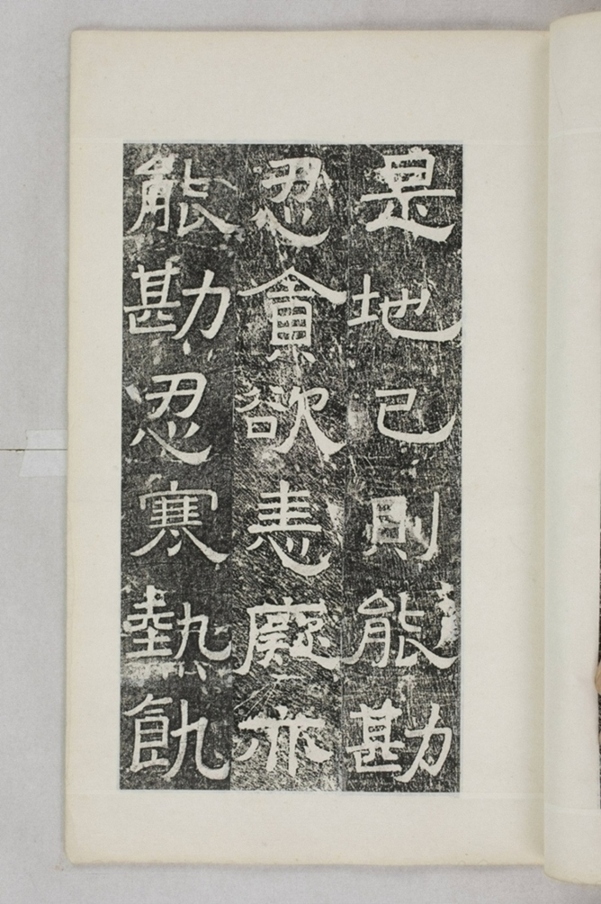 是地已則能勘
忍貪欲恚癡亦
能勘忍寒熱飢